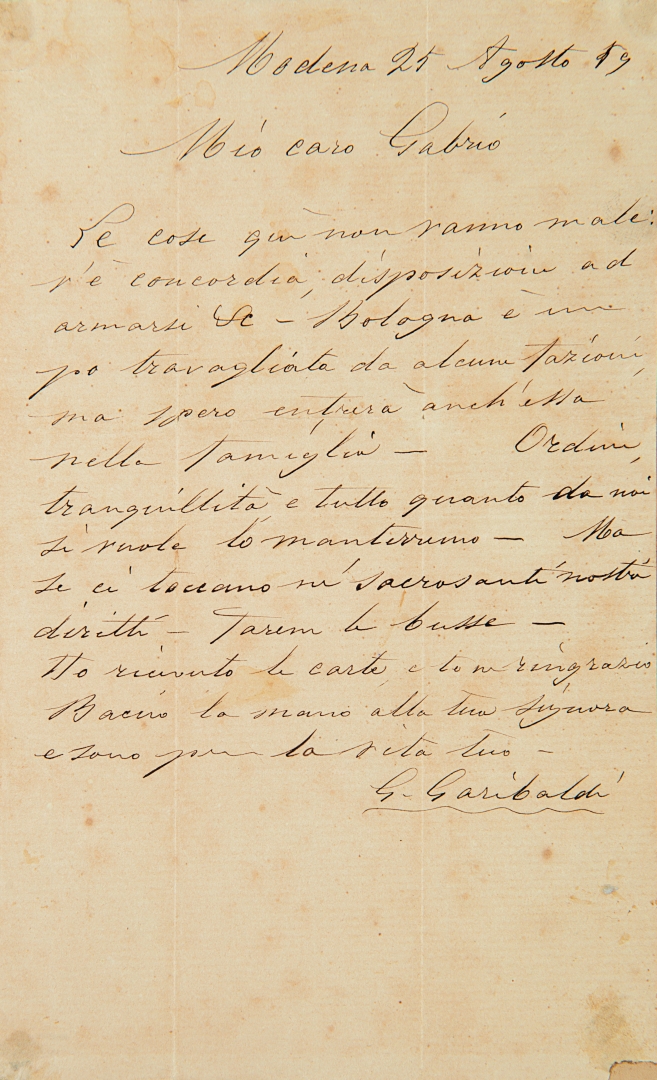 Modena 25 Agosto 59
Mio caro Gabrio
Le cose quì non vanno male:
v'è concordia, disposizioni ad
armarsi &c - Bologna è un
po travagliata da alcune fazioni,
ma spero entrerà anch'essa
nella famiglia - Ordine,
tranquillità e tutto quanto da noi
si vuole lo manterremo - Ma
se ci toccano ne' sacrosanti nostri
diritti - farem le busse -
Ho ricevuto le carte, e te ne ringrazio
Bacio la mano alla tua signora
e sono per la vita tuo -
G. Garibaldi